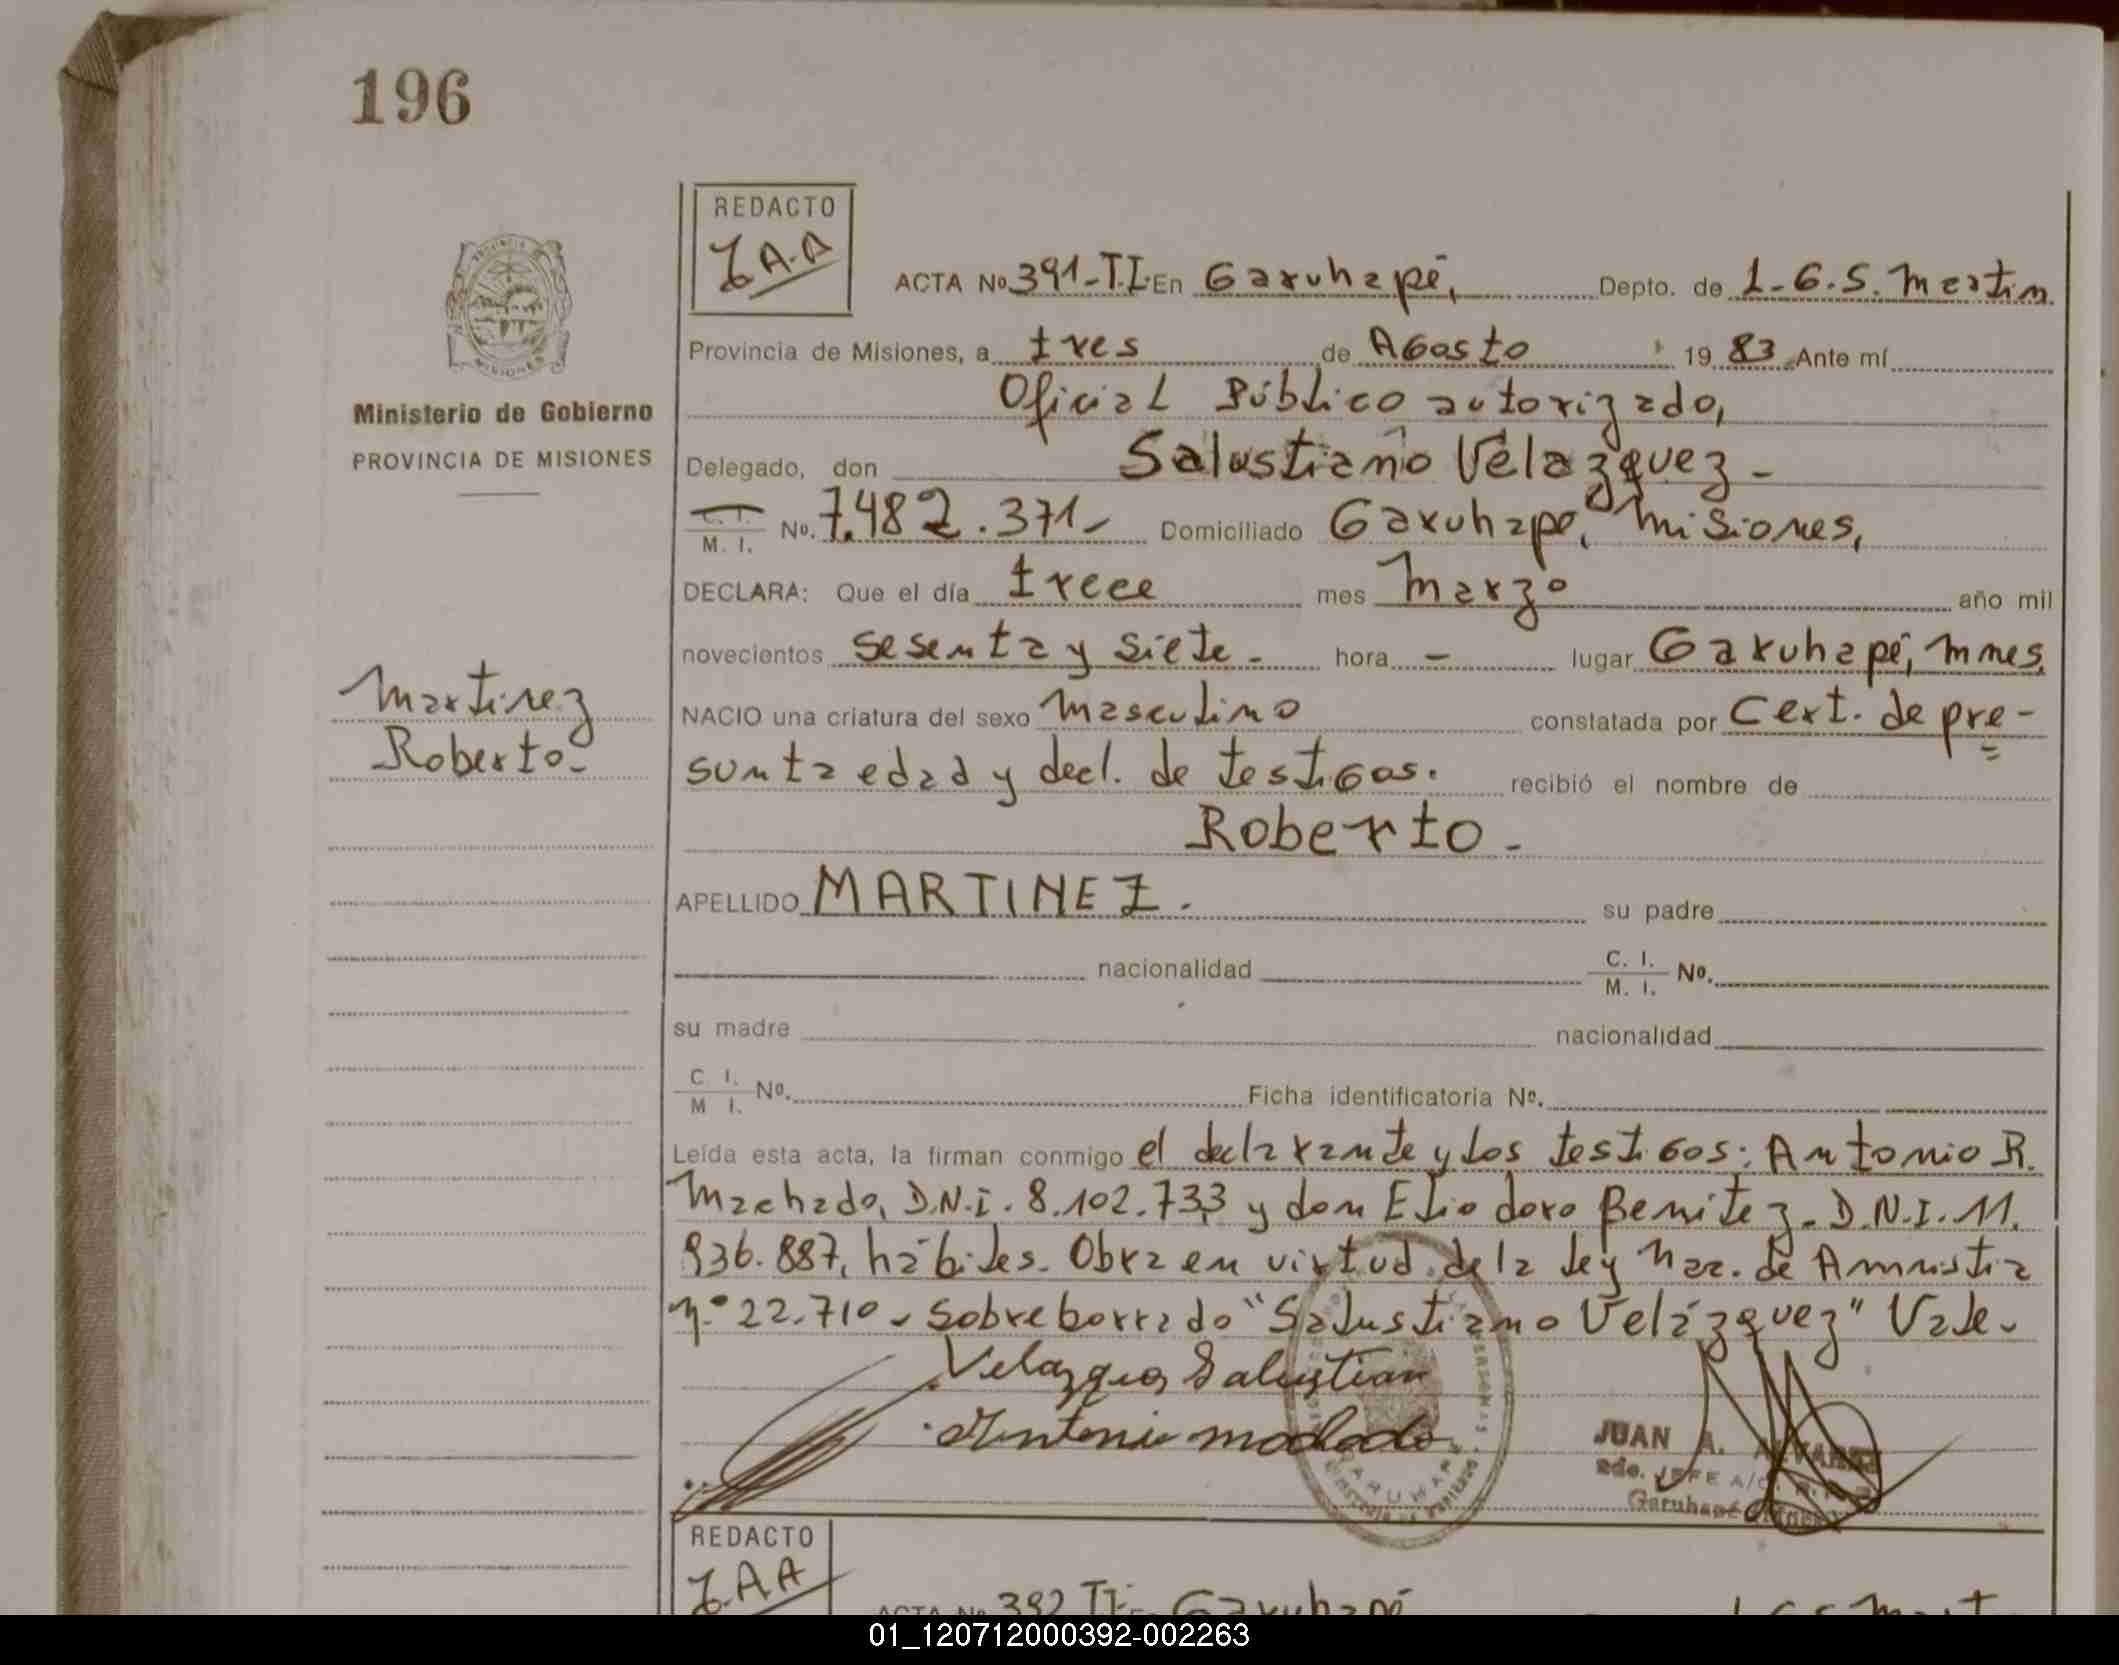 196
REDACTO
J.A.A
ACTA No 391-T.I. En Garuhapé, Depto. de L.G.S. Martin
Provincia de Misiones, a tres de Agosto 1983 Ante mí
Oficial Público autorizado,
Ministerio de Gobierno
PROVINCIA DE MISIONES
Delegado, don Salustiano Velázquez -
C. I. M. I. No. 7.482.371- Domiciliado Garuhapé, Misiones,
DECLARA: Que el día trece mes Marzo año mil
novecientos sesenta y siete - hora - lugar Garuhapé, Mnes,
Martinez
Roberto-
NACIO una criatura del sexo masculino constatada por Cert. de pre-
sunta edad y decl. de testigos. recibió el nombre de
Roberto -
APELLIDO MARTINEZ. su padre
nacionalidad C. I. M. I. No.
su madre nacionalidad
C. I. M I. No. Ficha identificatoria No.
Leída esta acta, la firman conmigo el declarante y los testigos: Antonio R.
Machado, D.N.I. 8.102.733 y don Eliodoro Benitez - D.N.I. 11.
936.887, hábiles. Obra en virtud de la ley Nac. de Amnistia
n° 22.710 - Sobreborrado "Salustiano Velázquez" Vale -
Velazquez Salustian
Antonio machado
GARUHAPE
JUAN A. ALVAREZ
2do. JEFE A/C.
Garuhapé
REDACTO
J.A.A
ACTA No 392 T.I. En Garuhapé L.G.S. Mart
01_120712000392-002263